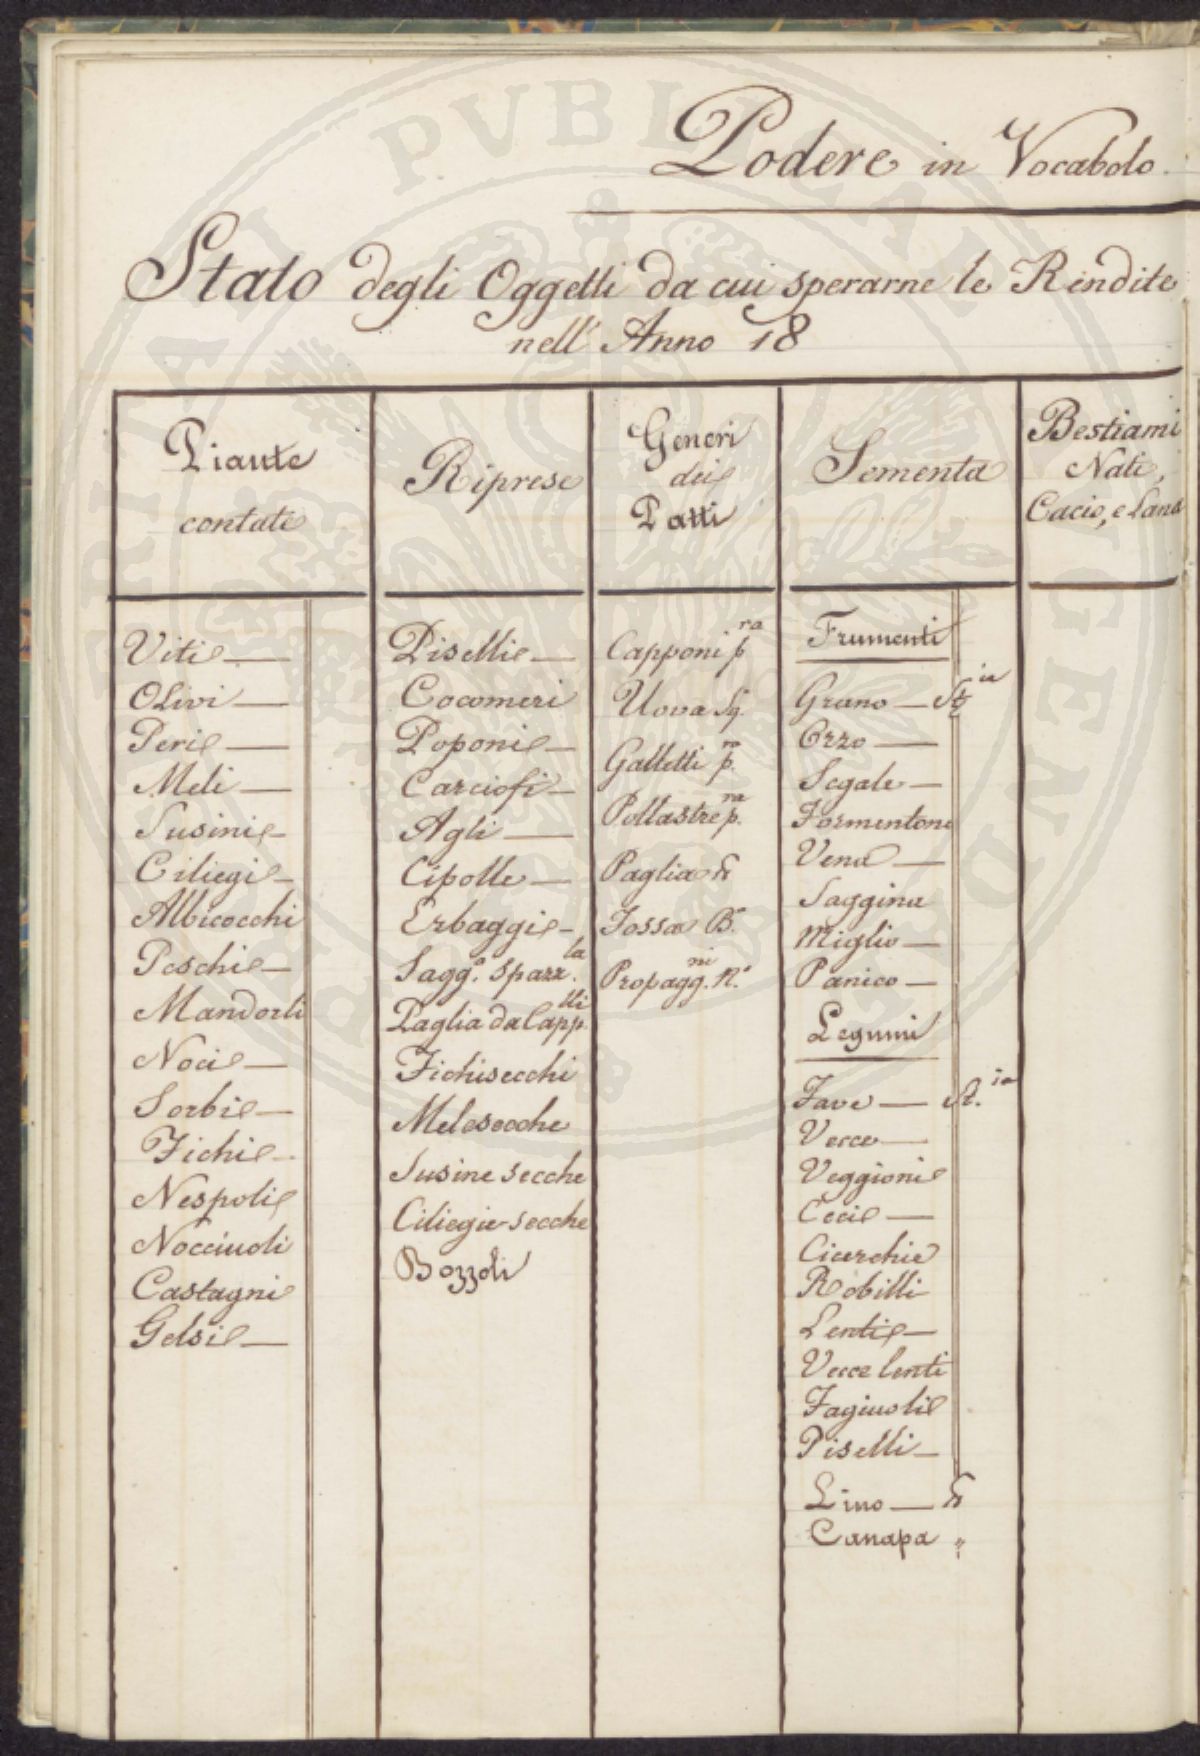 Podere in Vocabolo
Stato degli Oggetti da cui sperarne le Rendite
nell' Anno 18
Piante
contate
Viti —
Olivi —
Peri —
Meli —
Susini —
Ciliegi —
Albicocchi
Peschi —
Mandorli
Noci —
Sorbi —
Fichi —
Nespoli
Nocciuoli
Castagni
Gelsi —
Riprese
Piselli —
Cocomeri
Poponi —
Carciofi —
Agli —
Cipolle —
Erbaggi —
Sagg.ª Spazz.la
Paglia da Capp.lli
Fichisecchi
Melesecche
Susine secche
Ciliegie secche
Bozzoli
Generi
dei
Patti
Capponi p.ra
Uova Sq.
Galletti p.ra
Pollastre p.ra
Paglia
Fossa B.
Propagg.ni N.º
Sementa
Frumenti
Grano — St.ia
Orzo —
Segale —
Formentone
Vena —
Saggina
Miglio —
Panico —
Legumi
Fave — St.ia
Vecce —
Veggioni
Ceci —
Cicerchie
Robilli
Lenti —
Vecce lenti
Fagiuoli
Piselli —
Lino —
Canapa "
Bestiami
Nati,
Cacio, e Lana